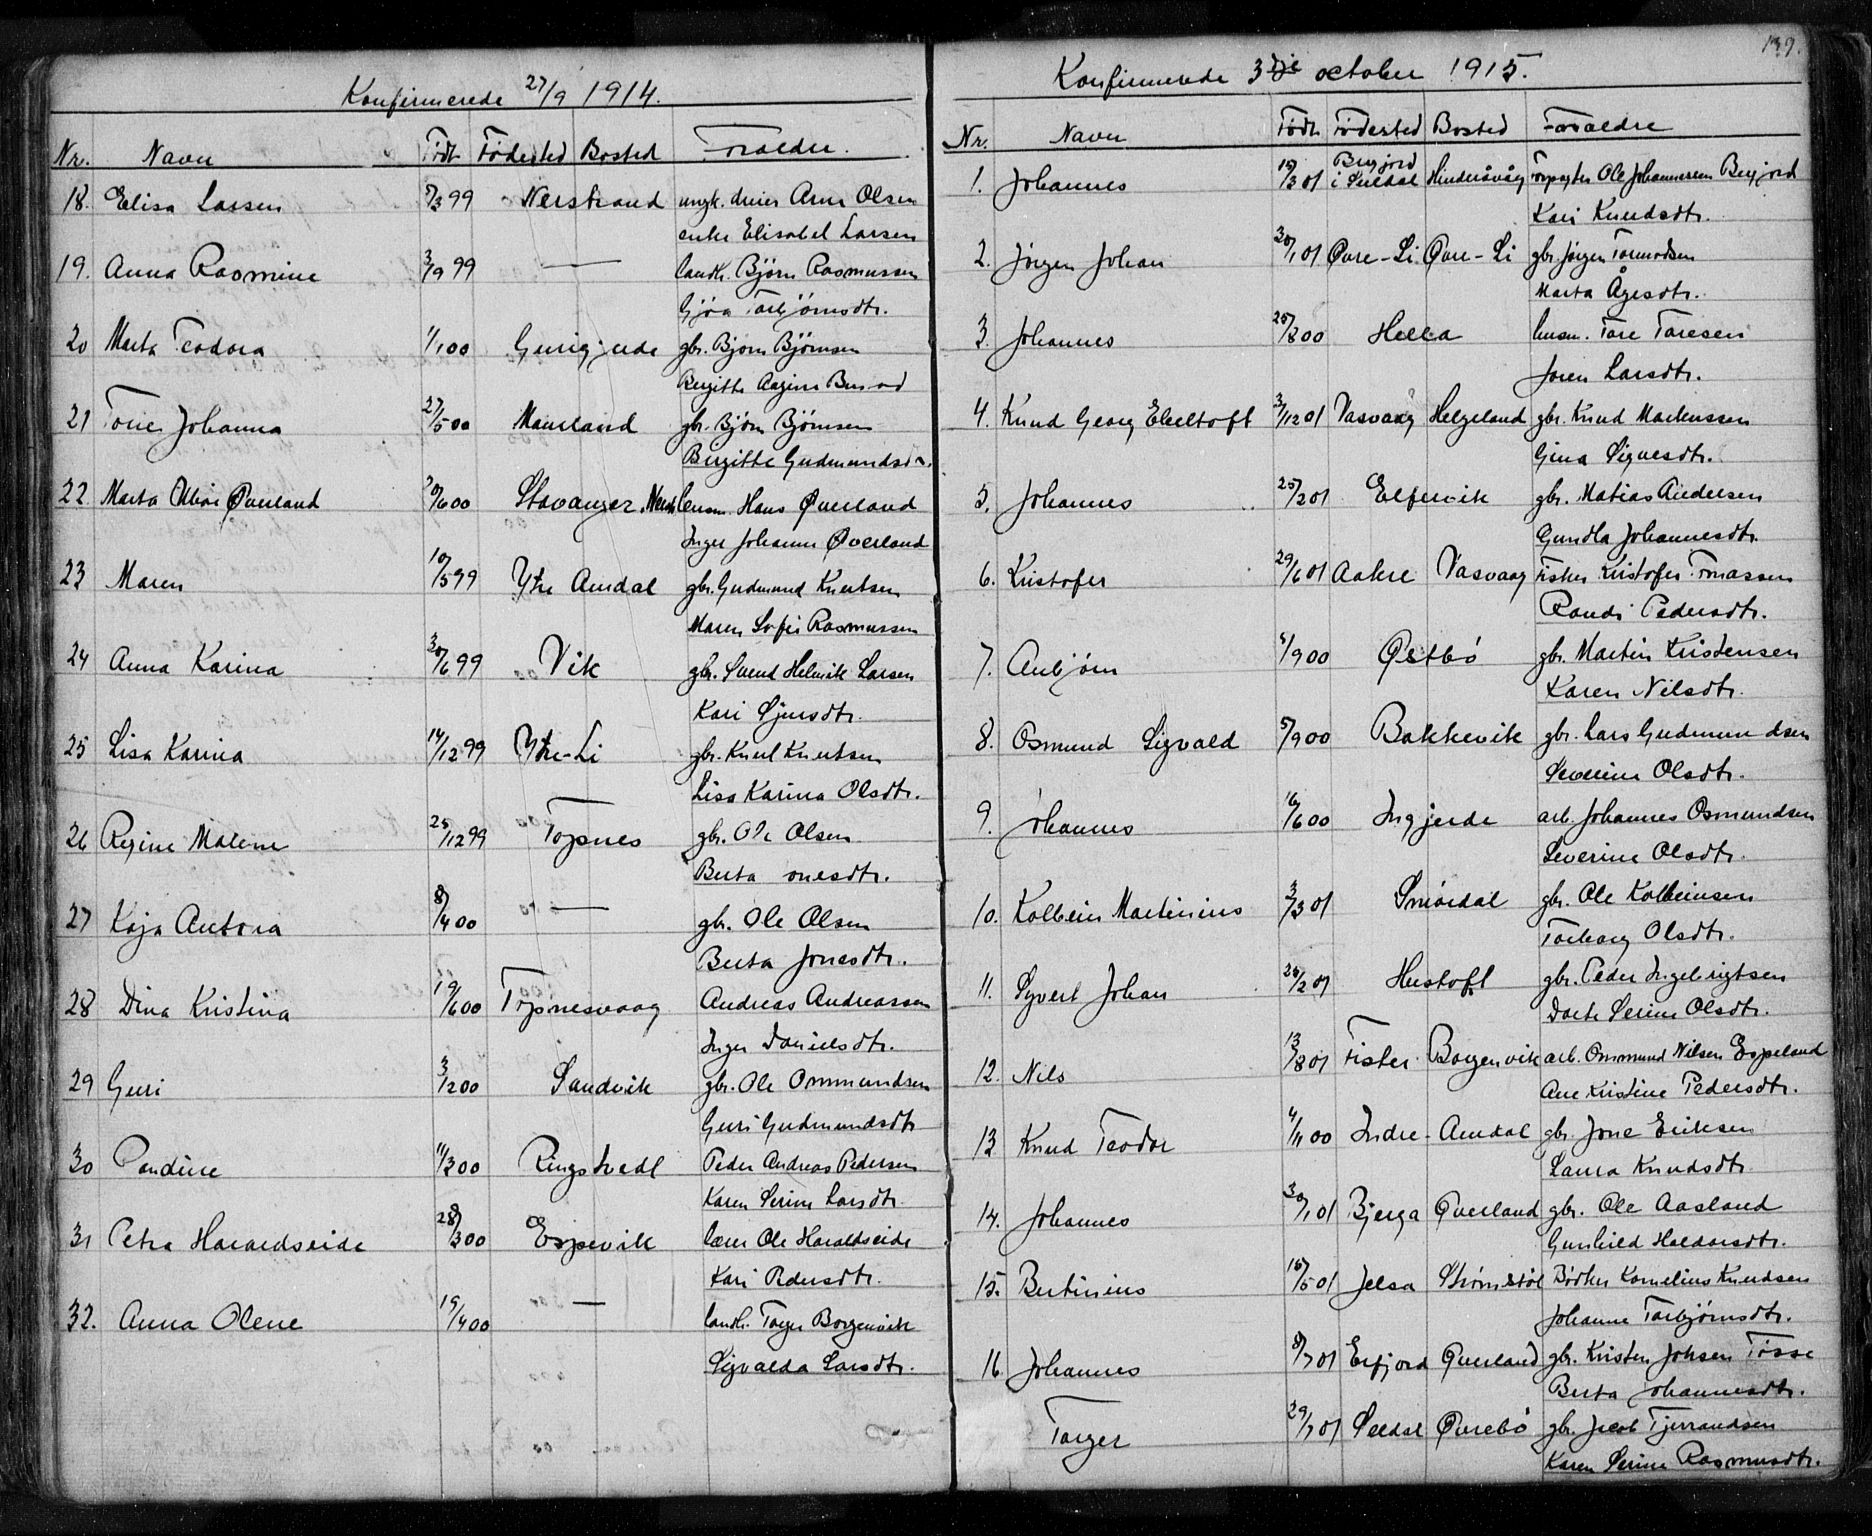 Konfirmerede 27/9 1914.
Nr. Navn Født Fødested Bosted Forældre.
18. Elisa Larsen 5/3 99 Nerstrand ungk. dreier Arne Olsen
enke Elisabet Larsen
19. Anna Rasmine 3/9 99 — landh. Bjørn Rasmussen
Gjøa Torbjørnsdtr.
20 Marta Teodora 1/1 00 gbr. Bjørn Bjørnsen
Birgitte
21 Tone Johanna 27/5 00 Mæusland gbr. Bjørn Bjørnsen
Birgitte Gudmundsd
22. Marta Øverland 20/6 00 Stavanger. Hans Øverland
Inger Johanne Øverland
23 Maren 10/5 99 Ytre Amdal gbr. Gudmund Knutsen
Maren Sofie Rasmussen
24 Anna Karina 30/6 99 Vik gbr. Svend Helmik Larsen
Kari Sjursdtr.
25 Lisa Karina 14/12 99 Ytre-Li gbr. Knut Knutsen
Lisa Karina Olsdtr.
26 Regine Malene 25/12 99 Topnes gbr. Ole Olsen
Berta onesdtr.
27 Kaja Antona 8/4 00 — gbr. Ole Olsen
Berta Jonesdtr.
28 Dina Kristina 19/6 00 Topnesvaag Andreas Andreassen
Inger Danielsdtr.
29 Guri 3/12 00 Sandvik gbr. Ole Ommundsen
Guri Gudmundsdtr
30 Pandine 11/3 00 Ringstvedt Peder Andreas Pedersen
Karen Serine Larsdtr.
31 Petra Haraldseide 28/3 00 Espevik lærer Ole Haraldseide
Kari Pedersdtr.
32. Anna Olene 19/4 00 — landh. Torger Borgenvik
Sigvalda Larsdtr.
139.
Konfirmerede 3die october 1915.
Nr. Navn Født Fødested Bosted Forældre
1. Johannes 19/3 01 Bergjord i Suldal Hinderåvåg Ole Johannessen Bergjord
Kari Knudsdtr.
2. Jørgen Johan 30/1 01 Øvre-Li Øvre-Li gbr. Jørgen Tormodsen
Marta Ågesdtr.
3. Johannes 25/8 00 Hella husm. Tore Toresen
Joren Larsdtr.
4. Knud Georg Ebeltoft 3/12 01 Vasvaag Helgeland gbr. Knud Martenssen
Gina Sigvesdtr.
5. Johannes 25/2 01 Espervik gbr. Matias Andersen
Gundla Johannesdtr.
6. Kristofer 29/6 01 Aakre Vasvaag Fisker Kristofer Tomassen
Randi Pedersdtr.
7. Anbjørn 5/9 00 Østbø gbr. Martin Kristensen
Karen Nilsdtr.
8. Osmund Sigvald 5/9 00 Bakkevik gbr. Lars Gudmundsen
Severine Olsdtr.
9. Johannes 16/6 00 Ingjerde arb. Johannes Osmundsen
Severine Olsdtr.
10. Kolbein Martinius 3/3 01 Smørdal gbr. Ole Kolbeinsen
Torborg Olsdtr.
11. Syvert Johan 26/2 01 Hustoft gbr. Peder Ingebrigtsen
Dorte Serine Olsdtr.
12. Nils 13/8 01 Fister Borgenvik arb. Ommund Nilsen Espeland
Ane Kristine Pedersdtr.
13 Knud Teodor 4/11 00 Indre-Amdal gbr. Jone Eriksen
Laura Knudsdtr.
14. Johannes 30/1 01 Bjerga Øverland gbr. Ole Aasland
Gunhild Haldorsdtr.
15. Bertinius 16/5 01 Jelsa Strømstøl Bødker Kornelius Knudsen
Johanne Torbjørnsdtr.
16. Johannes 8/7 01 Erfjord Øverland gbr. Kristen Johsen Tøsse
Berta Johannesdtr.
Torger 29/7 01 Suldal Øvrebø gbr. Jacob Tjerrandsen
Karen Serine Rasmusdtr.